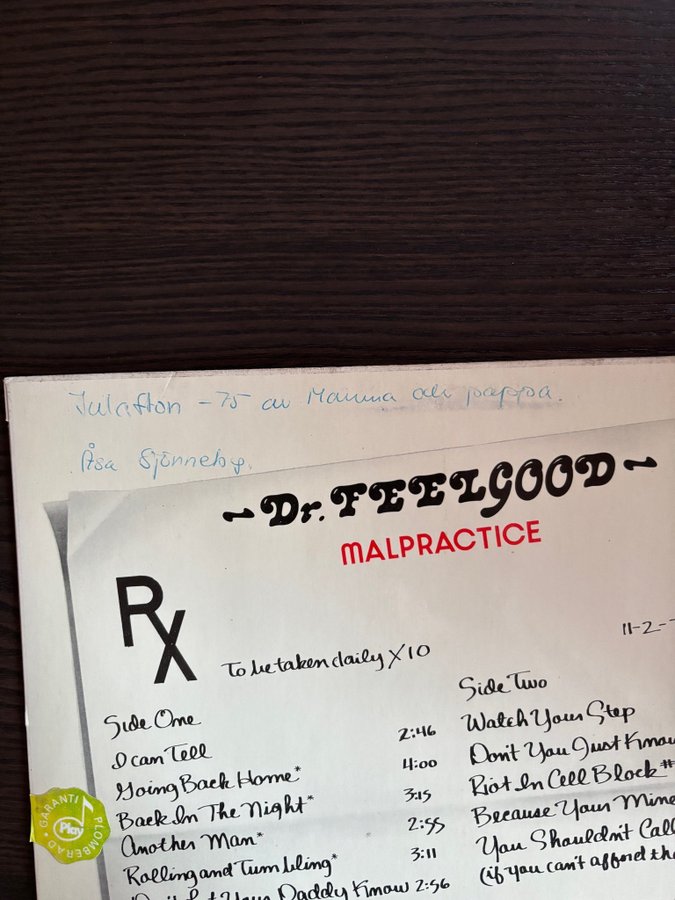 Julafton -75 av Mamma och pappa.
Åsa Sjönneby.
~Dr. FEELGOOD~
MALPRACTICE
Rx
To be taken daily X10
11-2-
Side One
I can Tell 2:46
Going Back Home* 4:00
Back In The Night* 3:15
Another Man* 2:55
Rolling and Tumbling* 3:11
Don't Let Your Daddy Know 2:56
Side Two
Watch Your Step
Don't You Just Know
Riot In Cell Block #
Because Your Mine
You Shouldn't Call
(if you can't afford th
GARANTI PLOMBERAD
Play